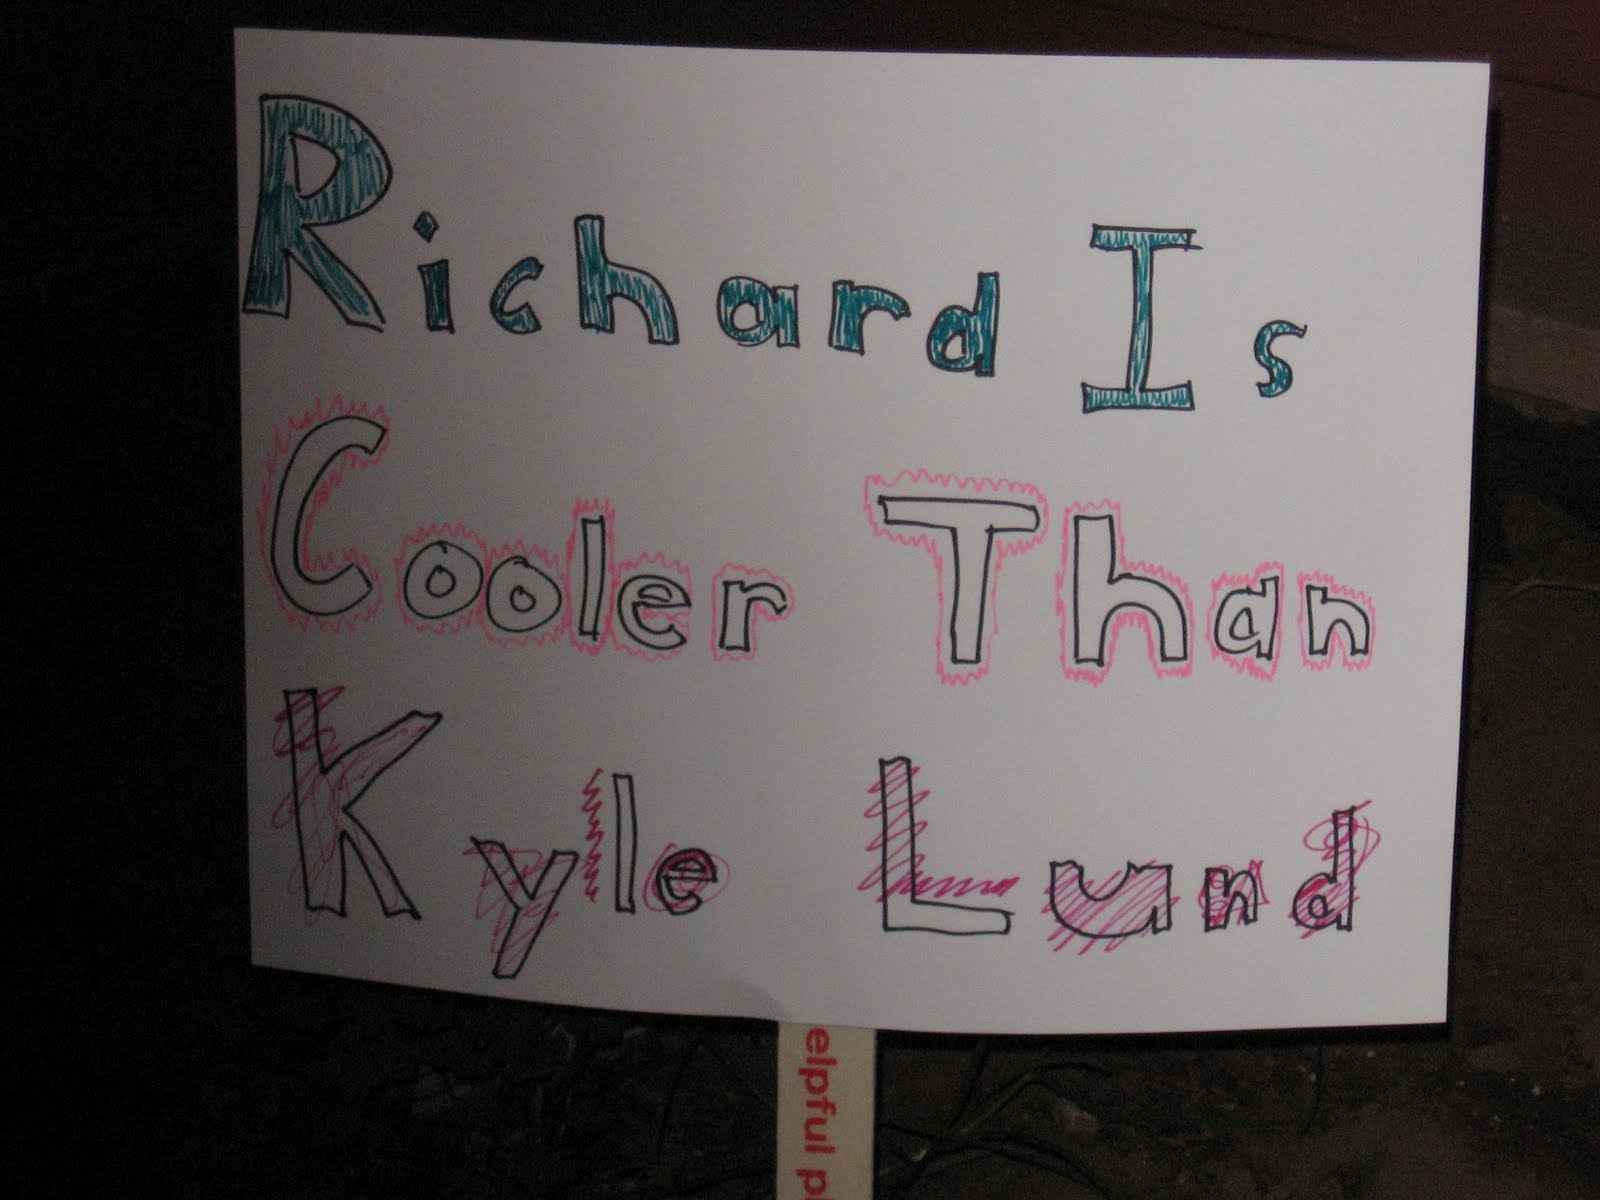 Richard Is
Cooler Than
Kyle Lund
elpful p